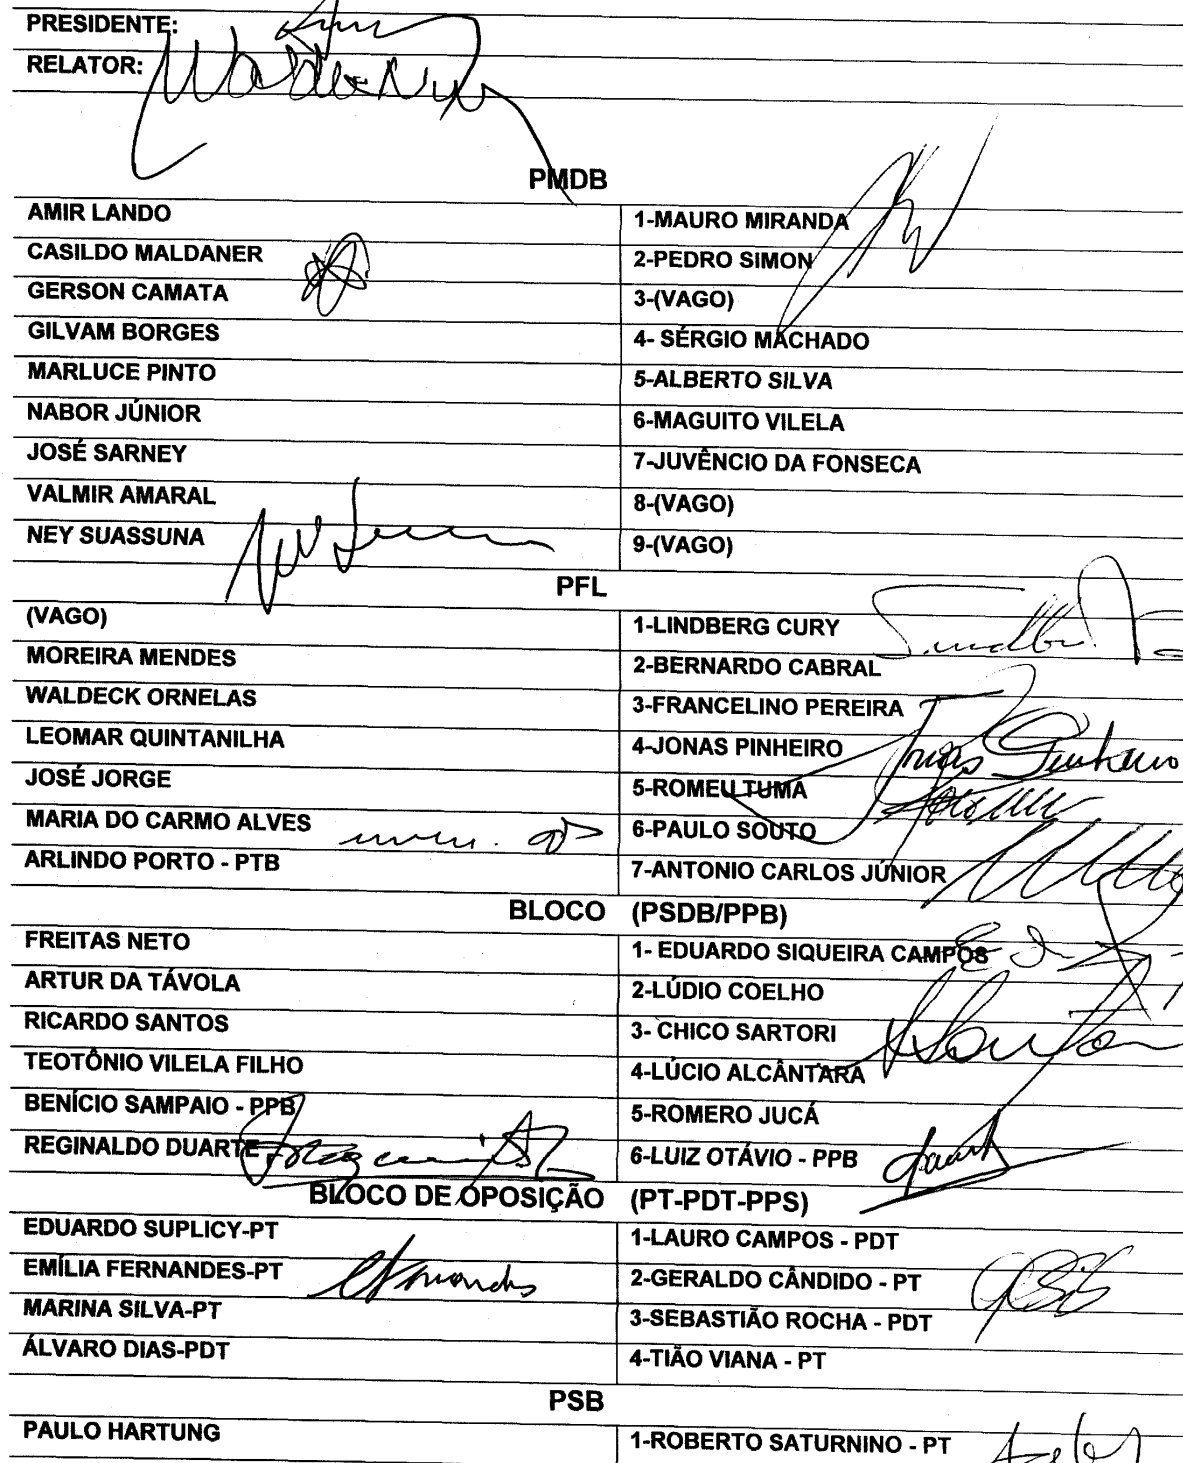 PRESIDENTE:
RELATOR:
PMDB
AMIR LANDO 1-MAURO MIRANDA
CASILDO MALDANER 2-PEDRO SIMON
GERSON CAMATA 3-(VAGO)
GILVAM BORGES 4- SÉRGIO MACHADO
MARLUCE PINTO 5-ALBERTO SILVA
NABOR JÚNIOR 6-MAGUITO VILELA
JOSÉ SARNEY 7-JUVÊNCIO DA FONSECA
VALMIR AMARAL 8-(VAGO)
NEY SUASSUNA 9-(VAGO)
PFL
(VAGO) 1-LINDBERG CURY
MOREIRA MENDES 2-BERNARDO CABRAL
WALDECK ORNELAS 3-FRANCELINO PEREIRA
LEOMAR QUINTANILHA 4-JONAS PINHEIRO Jonas Pinheiro
JOSÉ JORGE 5-ROMEU TUMA
MARIA DO CARMO ALVES 6-PAULO SOUTO
ARLINDO PORTO - PTB 7-ANTONIO CARLOS JÚNIOR
BLOCO (PSDB/PPB)
FREITAS NETO 1- EDUARDO SIQUEIRA CAMPOS
ARTUR DA TÁVOLA 2-LÚDIO COELHO
RICARDO SANTOS 3- CHICO SARTORI
TEOTÔNIO VILELA FILHO 4-LÚCIO ALCÂNTARA
BENÍCIO SAMPAIO - PPB 5-ROMERO JUCÁ
REGINALDO DUARTE 6-LUIZ OTÁVIO - PPB
BLOCO DE OPOSIÇÃO (PT-PDT-PPS)
EDUARDO SUPLICY-PT 1-LAURO CAMPOS - PDT
EMÍLIA FERNANDES-PT 2-GERALDO CÂNDIDO - PT
MARINA SILVA-PT 3-SEBASTIÃO ROCHA - PDT
ÁLVARO DIAS-PDT 4-TIÃO VIANA - PT
PSB
PAULO HARTUNG 1-ROBERTO SATURNINO - PT